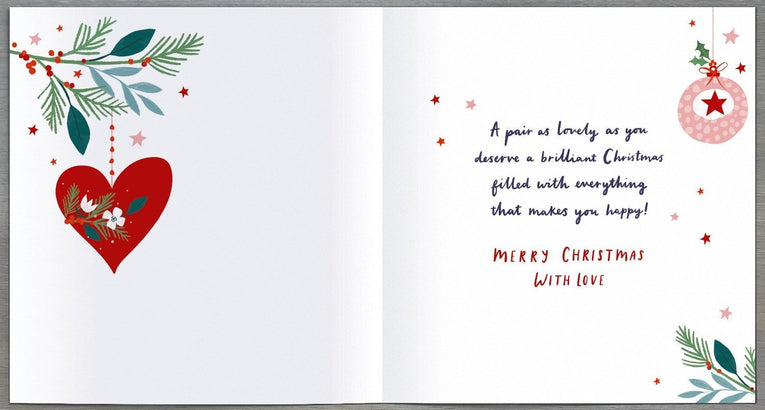 A pair as lovely as you
deserve a brilliant Christmas
filled with everything
that makes you happy!
MERRY CHRISTMAS
WITH LOVE